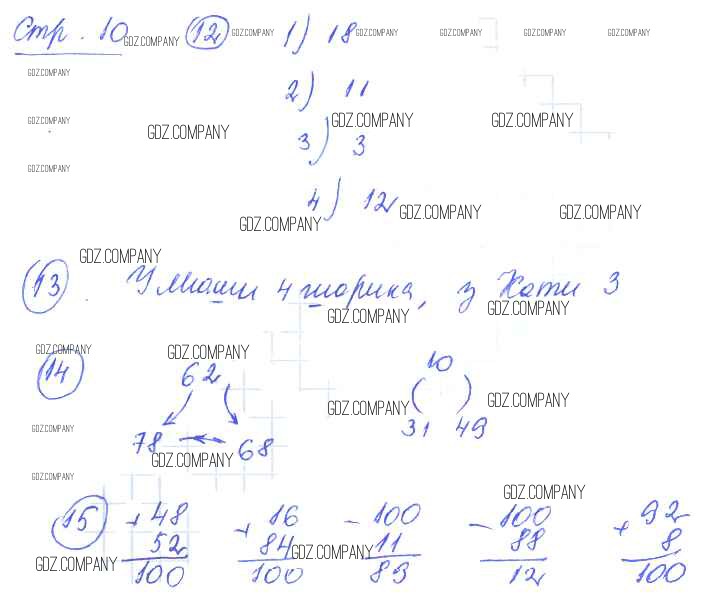 Стр. 10 GDZ.COMPANY 12 GDZ.COMPANY 1) 18 GDZ.COMPANY GDZ.COMPANY GDZ.COMPANY GDZ.COMPANY
GDZ.COMPANY 2) 11
GDZ.COMPANY GDZ.COMPANY GDZ.COMPANY GDZ.COMPANY
3) 3
GDZ.COMPANY
4) 12 GDZ.COMPANY GDZ.COMPANY
GDZ.COMPANY
GDZ.COMPANY
13. У Миши 4 шарика, у Кати 3
GDZ.COMPANY GDZ.COMPANY
GDZ.COMPANY GDZ.COMPANY
14 62 10
GDZ.COMPANY GDZ.COMPANY
GDZ.COMPANY 78 68 31 49
GDZ.COMPANY
GDZ.COMPANY GDZ.COMPANY
15 +48 +16 -100 -100 +92
52 84 11 88 8
GDZ.COMPANY
100 100 89 12 100
GDZ.COMPANY